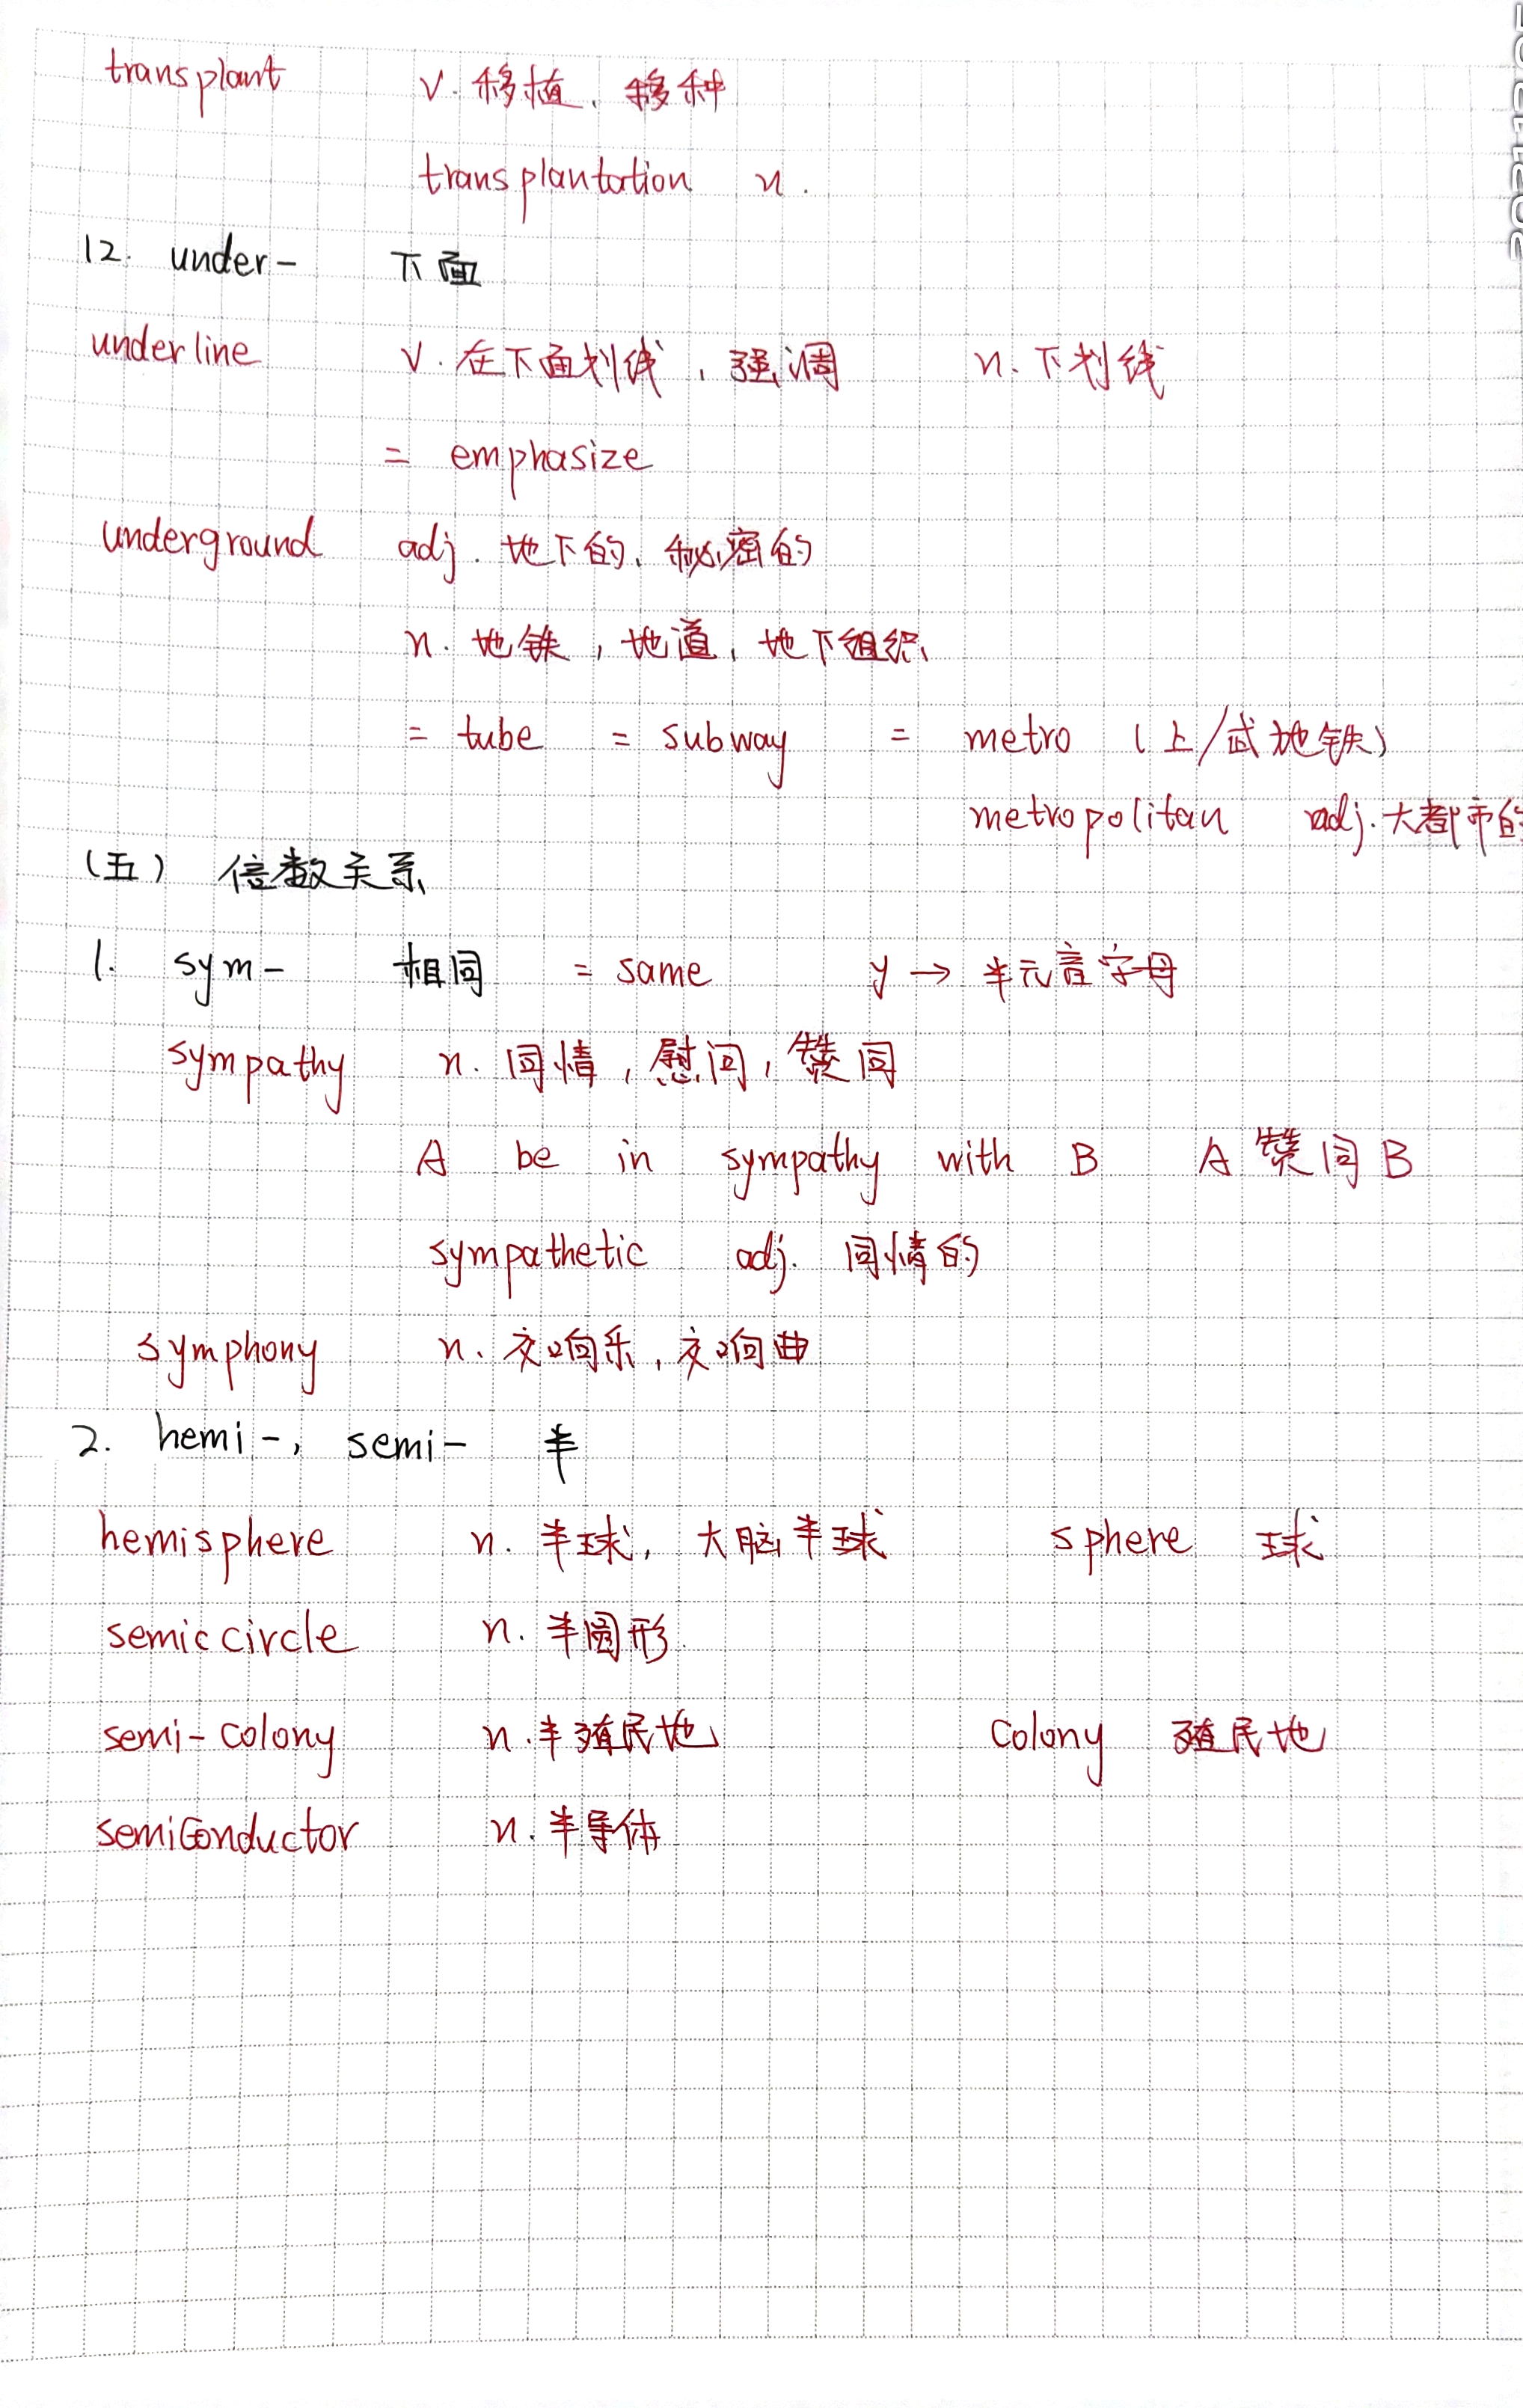 transplant v. 移植、移种
transplantation n.
12. under- 下面
underline v. 在下面划线，强调 n. 下划线
= emphasize
underground adj. 地下的、秘密的
n. 地铁，地道，地下组织
= tube = subway = metro (上/武地铁)
metropolitan adj. 大都市的
(五) 倍数关系
1. sym- 相同 = same y → 半元音字母
sympathy n. 同情，慰问，赞同
A be in sympathy with B A赞同B
sympathetic adj. 同情的
symphony n. 交响乐，交响曲
2. hemi-, semi- 半
hemisphere n. 半球，大脑半球 sphere 球
semiccircle n. 半圆形
semi-colony n. 半殖民地 colony 殖民地
semiconductor n. 半导体